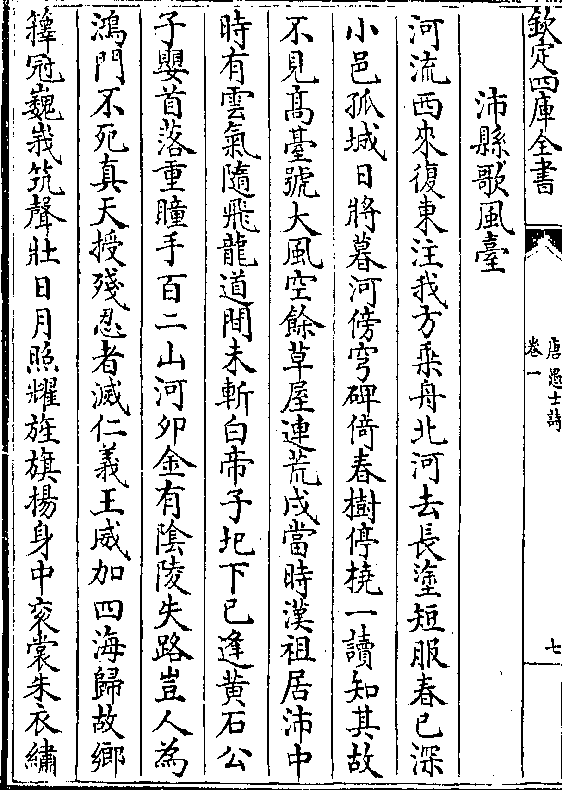 欽定四庫全書
唐愚士詩
卷一
七
沛縣歌風臺
河流西來復東注我方乘舟北河去長塗短服春已深
小邑孤城日將暮河傍穹碑倚春樹停橈一讀知其故
不見高臺號大風空餘草屋連荒戍當時漢祖居沛中
時有雲氣隨飛龍道間未斬白帝子圯下已逢黄石公
子嬰首落重瞳手百二山河卯金有陰陵失路豈人為
鴻門不死真天授殘忍者滅仁義王威加四海歸故鄉
籜冠巍峩筑聲壯日月照耀旌旗楊身中衮裳朱衣繡